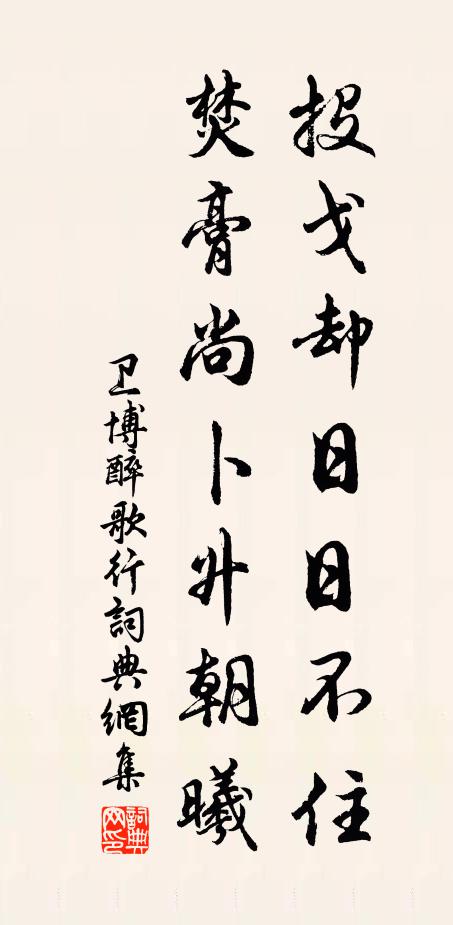 投戈却日日不住
焚膏尚卜升朝曦
卫博醉歌行詞典網集
詞典網印